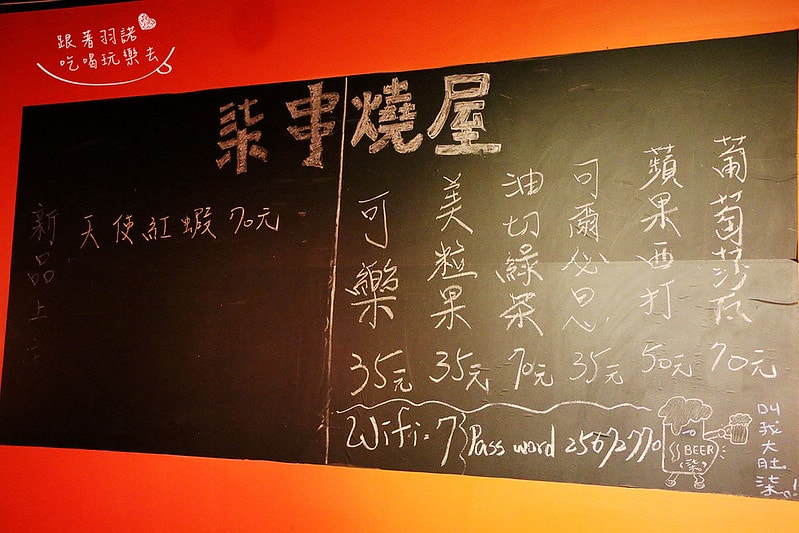 跟著羽諾
吃喝玩樂去
柒串燒屋
新品上市
天使紅蝦 70元
葡萄莎瓦 70元
蘋果西打 50元
可爾必思 35元
油切綠茶 70元
美粒果 35元
可樂 35元
Wifi = 7
Pass word 25672770
BEER
柒
叫我大肚柒!